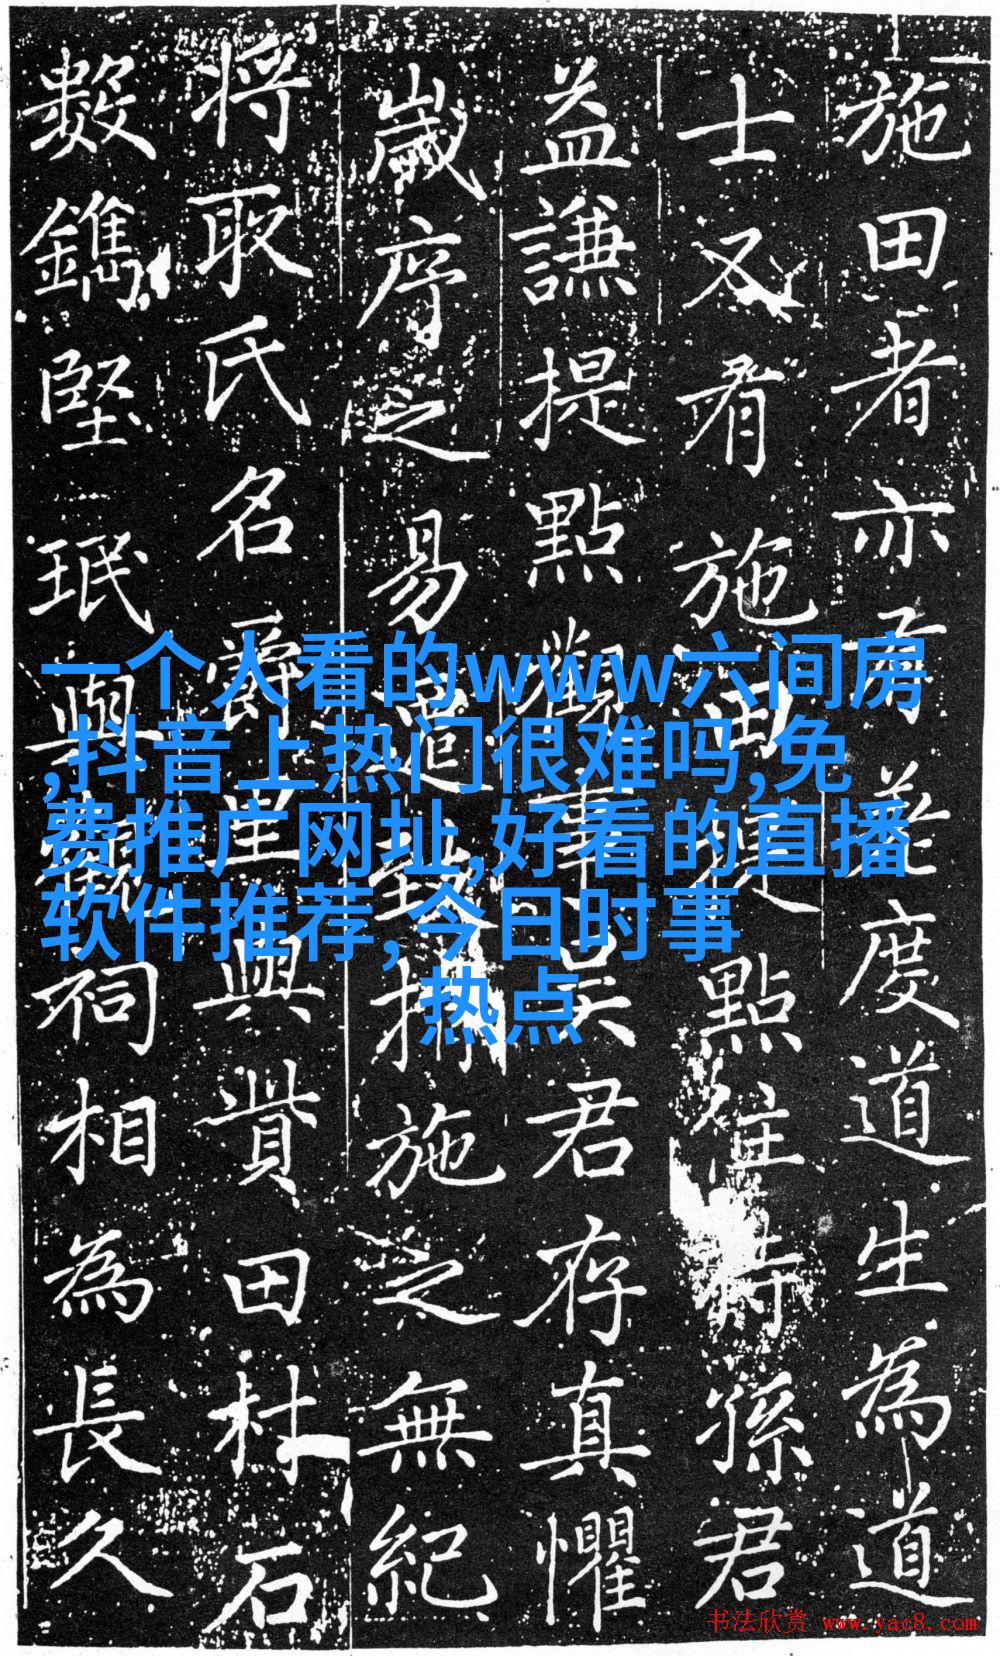 施田者亦有差度道生為道
士又有施田提點住持孫君
益謙提點觀事吳君存真懼
歲序之易施之無紀
將取氏名爵里與貲田石
數鐫堅珉與觀祠相為長久
一个人看的www六间房
,抖音上热门很难吗,免
费推广网址,好看的直播
软件推荐,今日时事
热点
书法欣赏 www.yac8.com